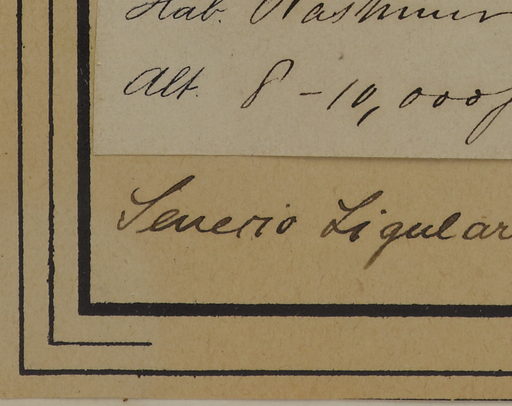 Hab. Kashmir
Alt. 8-10,000f
Senecio Ligular